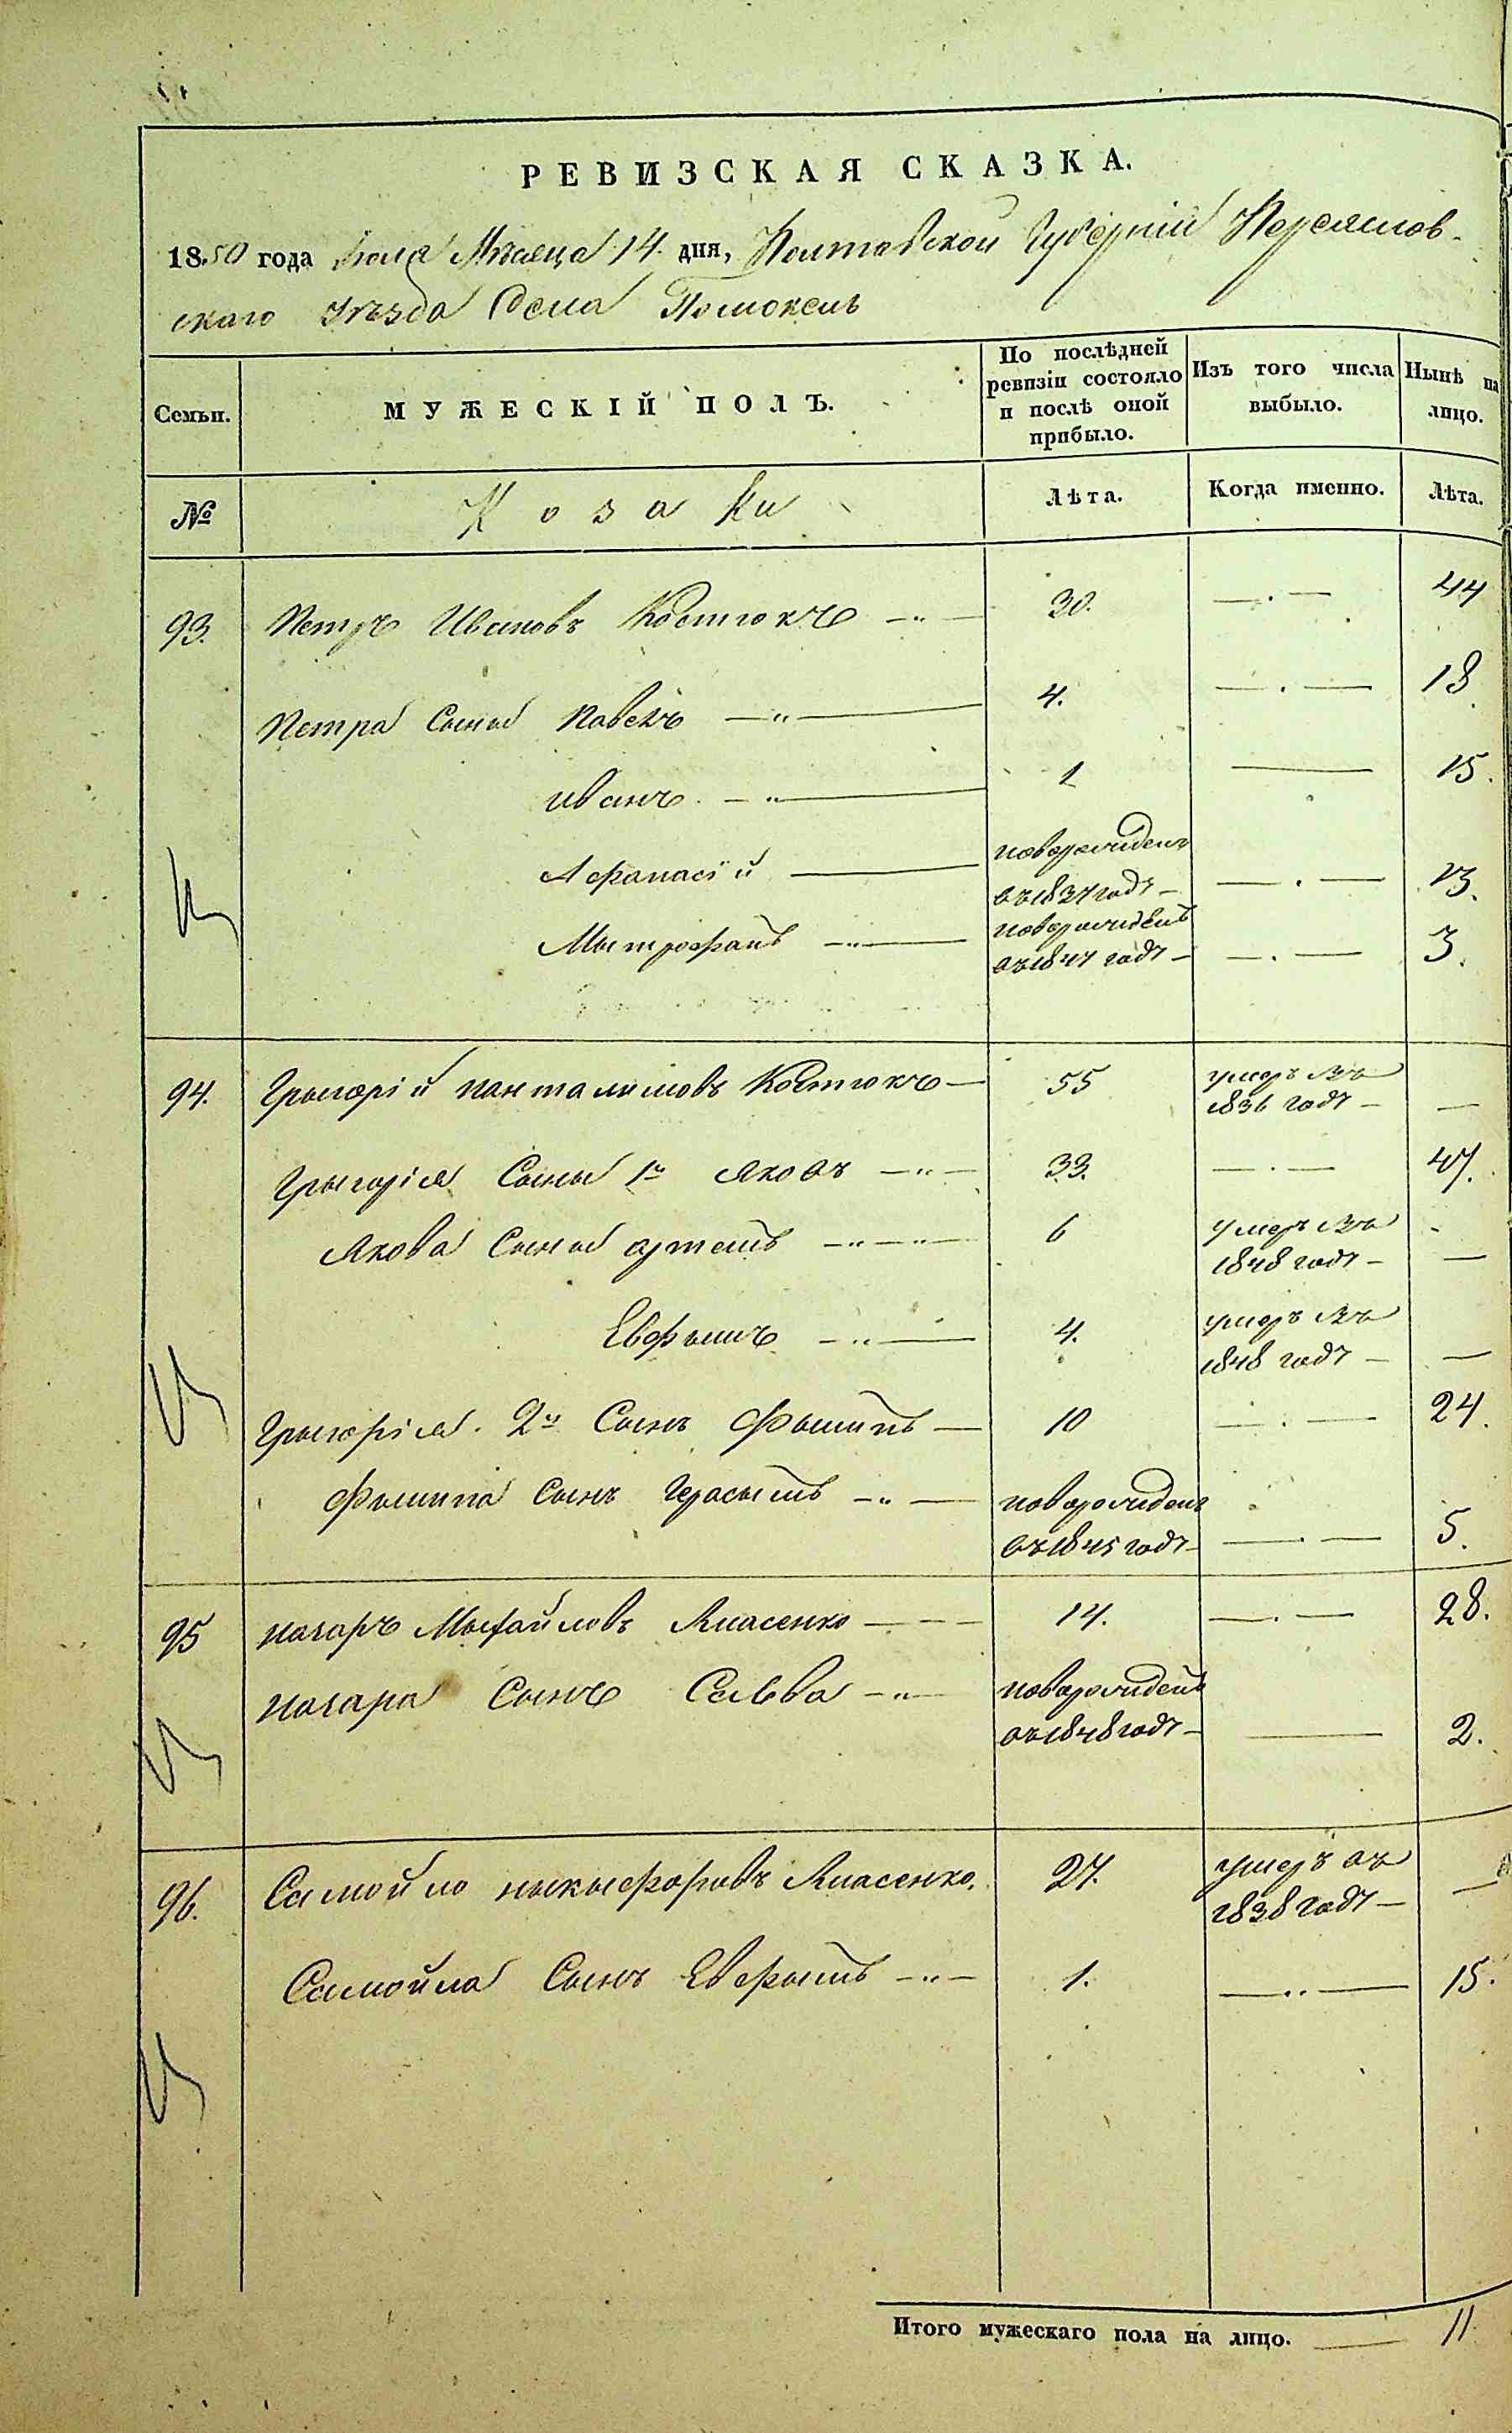 РЕВИЗСКАЯ СКАЗКА.
1850 года Іюля Мѣсяца 14. дня, Полтавской Губерніи Переяслов-
скаго уѣзда Села Помоклъ
Семьи. МУЖЕСКІЙ ПОЛЪ. По послѣдней ревизіи состояло и послѣ оной прибыло. Изъ того числа выбыло. Нынѣ на лицо.
№ Козаки Лѣта. Когда именно. Лѣта.
93. Петръ Ивановъ Костюкъ 30. 44
Петра Сыны Павелъ 4. 18
Иванъ 1 15.
Афанасій новорожденъ въ 1837 годѣ 13.
Мытрофанъ новорожденъ въ 1847 годѣ 3.
94. Грыгорій Панталимовъ Костюкъ 55 умеръ въ 1836 годѣ —
Грыгорія Сыны 1й Яковъ 33. 47.
Якова Сыны Артемъ 6 умеръ въ 1848 годѣ —
Евфымъ 4. умеръ въ 1848 годѣ —
Грыгорія. 2й Сынъ Фылипъ 10 24.
Фылипа Сынъ Герасымъ новорожденъ въ 1845 годѣ 5.
95 Назаръ Мыхайловъ Власенко 14. 28.
Назара Сынъ Савва новорожденъ въ 1848 годѣ 2.
96. Самойло Ныкыфоровъ Власенко. 27. умеръ въ 1838 годѣ —
Самойла Сынъ Евфымъ 1. 15.
Итого мужескаго пола на лицо. 11